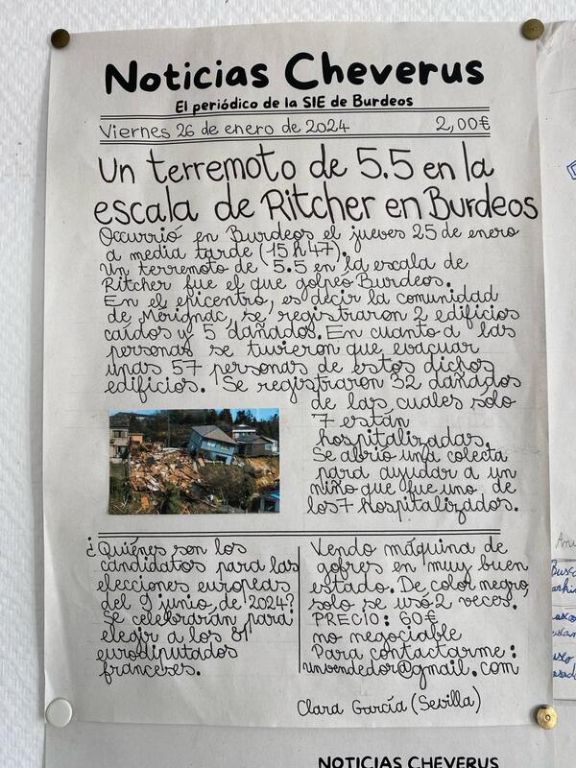 Noticias Cheverus
El periódico de la SIE de Burdeos
Viernes 26 de enero de 2024 2,00€
Un terremoto de 5.5 en la
escala de Ritcher en Burdeos
Occurrió en Burdeos el jueves 25 de enero
a media tarde (15h47).
Un terremoto de 5.5 en la escala de
Ritcher fue el que golpeó Burdeos.
En el epicentro, es decir la comunidad
de Merignac, se registraron 2 edificios
caídos y 5 dañados. En cuanto a las
personas se tuvieron que evacuar
unas 57 personas de estos dichos
edificios. Se registraron 32 dañados
de las cuales solo
7 están
hospitalizadas.
Se abrió una colecta
para ayudar a un
niño que fue uno de
los 7 hospitalizados.
¿Quiénes son los
candidatos para las
elecciones europeas
del 9 junio de 2024?
Se celebrarán para
elegir a los 81
eurodiputados
franceses.
Vendo máquina de
gofres en muy buen
estado. De color negro,
solo se usó 2 veces.
PRECIO: 60€
no negociable
Para contactarme:
unvendedor@gmail.com
Clara García (Sevilla)
NOTICIAS CHEVERUS